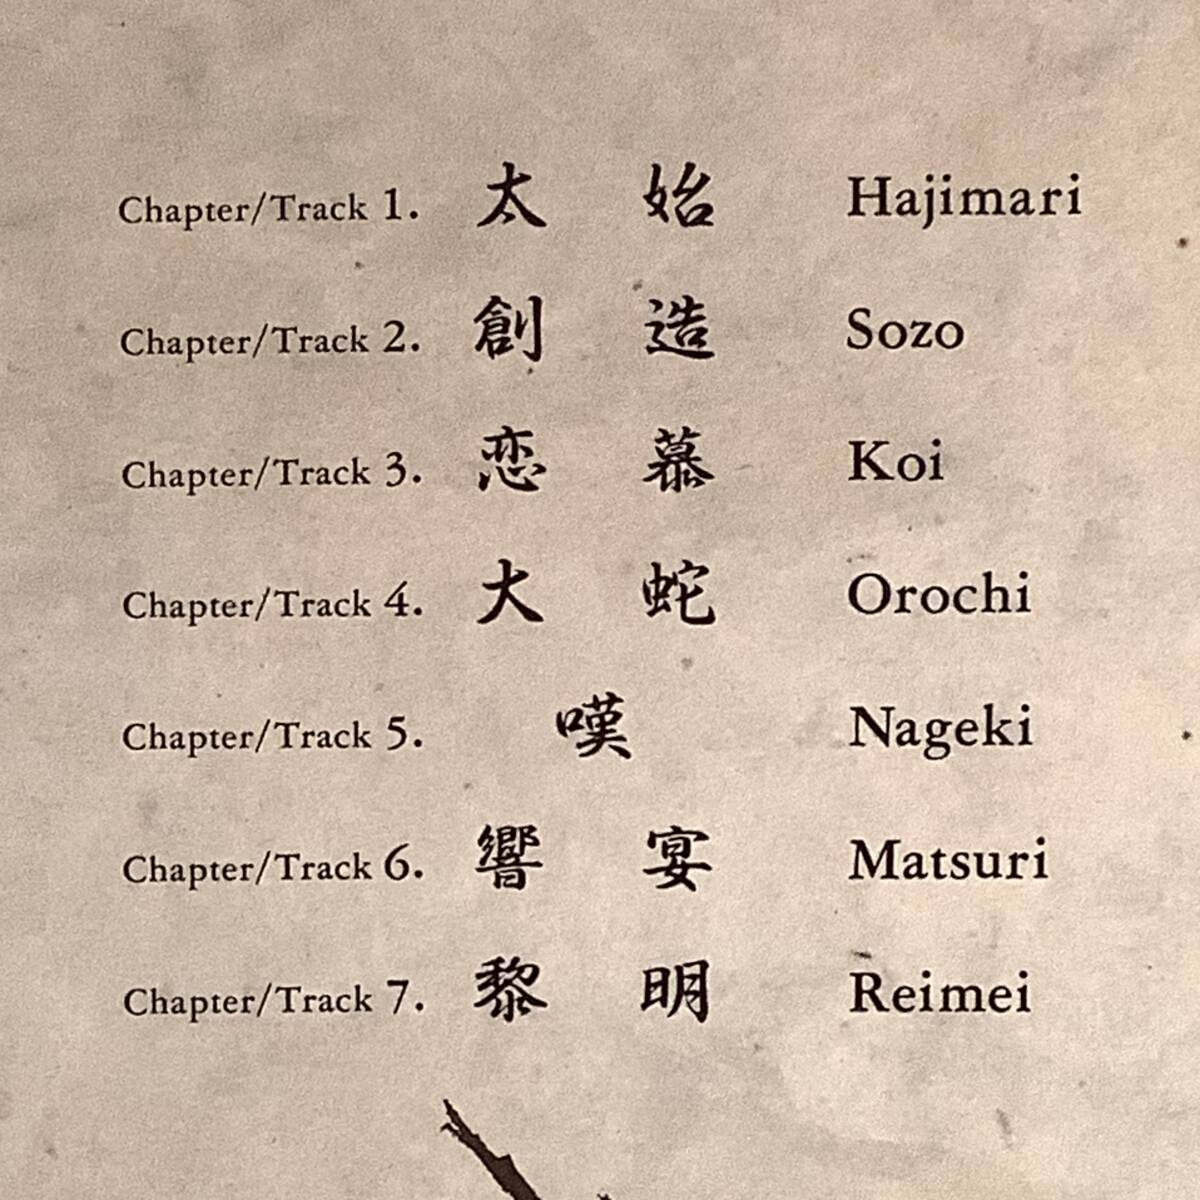 Chapter/Track 1. 太 始 Hajimari
Chapter/Track 2. 創 造 Sozo
Chapter/Track 3. 恋 慕 Koi
Chapter/Track 4. 大 蛇 Orochi
Chapter/Track 5. 嘆 Nageki
Chapter/Track 6. 響 宴 Matsuri
Chapter/Track 7. 黎 明 Reimei